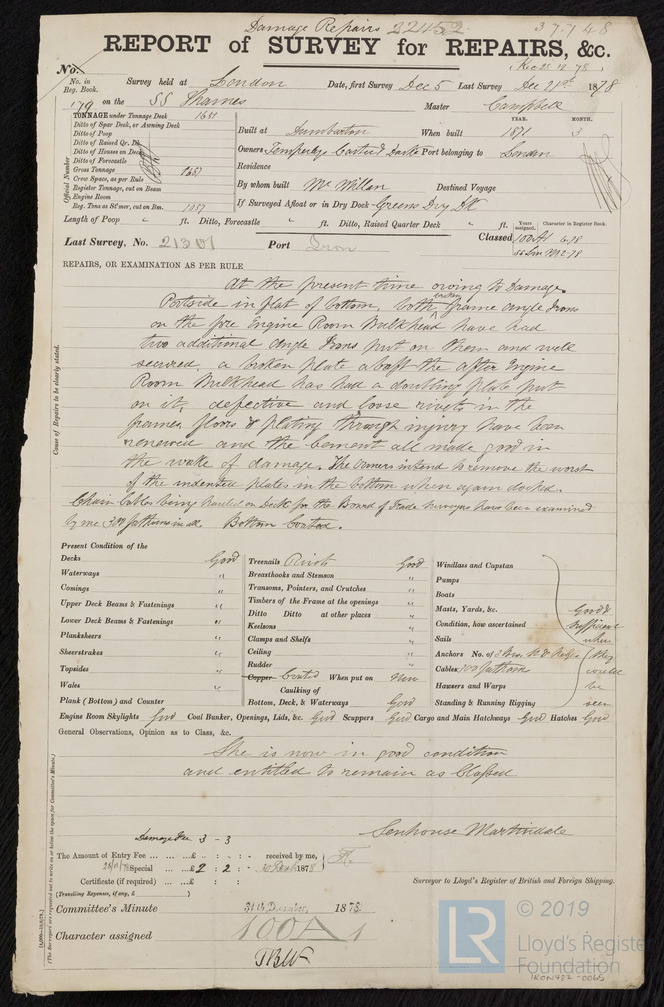 Damage Repairs 22452. 37748
REPORT of SURVEY for REPAIRS, &c.
No. (Rec 28.12.78)
No. in Reg. Book. Survey held at London Date, first Survey Dec 5 Last Survey Dec 21st 1878
179 on the SS Thames Master Campbell
TONNAGE under Tonnage Deck 1651
Ditto of Spar Deck, or Awning Deck
Ditto of Poop
Ditto of Raised Qr. Dk.
Ditto of Houses on Deck
Ditto of Forecastle
Gross Tonnage 1651
Crew Space, as per Rule
Register Tonnage, cut on Beam
Engine Room
Reg. Tons as St'mer, cut on Bm. 1057
Official Number
YEAR. MONTH.
Built at Dumbarton When built 1871 3
Owners Temperleys Carter & Darke Port belonging to London
Residence
By whom built McMillan Destined Voyage
If Surveyed Afloat or in Dry Dock Greens Dry Dk
Length of Poop " ft. Ditto, Forecastle " ft. Ditto, Raised Quarter Deck " ft.
Years assigned. Character in Register Book.
Last Survey, No. 21301 Port Iron Classed 100A1 6.78
REPAIRS, OR EXAMINATION AS PER RULE
Cause of Repairs to be clearly stated.
At the present time owing to Damage
Portside in flat of bottom, both broken frame angle Irons
on the fore Engine Room Bulkhead have had
two additional Angle Irons put on them and well
secured, a broken plate abaft the after Engine
Room Bulkhead has had a doubling plate put
on it, defective and loose rivets in the
frames floors & plating through injury have been
renewed and the cement all made good in
the wake of damage. The Owners intend to remove the worst
of the indented plates in the bottom when again docked.
Chain Cables being hauled on Deck for the Board of Trade Surveyors have been examined
by me, 300 fathoms in all. Bottom Coated.
Present Condition of the
Decks Good
Waterways "
Comings "
Upper Deck Beams & Fastenings "
Lower Deck Beams & Fastenings "
Planksheers "
Sheerstrakes "
Topsides "
Wales "
Plank (Bottom) and Counter
Treenails Rivets Good
Breasthooks and Stemson "
Transoms, Pointers, and Crutches "
Timbers of the Frame at the openings "
Ditto Ditto at other places "
Keelsons "
Clamps and Shelfs "
Ceiling "
Rudder "
Copper Coated When put on Now
Caulking of
Bottom, Deck, & Waterways Good
Windlass and Capstan
Pumps
Boats
Masts, Yards, &c.
Condition, how ascertained
Sails
Anchors No. of
Cables 300 fathoms
Hawsers and Warps
Standing & Running Rigging
Good &
sufficient
when
they
could
be
seen
Engine Room Skylights Good Coal Bunker, Openings, Lids, &c. Good Scuppers Good Cargo and Main Hatchways Good Hatches Good
General Observations, Opinion as to Class, &c.
She is now in good condition
and entitled to remain as Classed
Damage Fee 3 - 3
Senhouse Martindale
The Amount of Entry Fee ... £ : - : - received by me,
Special ... £ 2 : 2 : - 1878
Certificate (if required) ... £ : :
(Travelling Expenses, if any, £ )
Surveyor to Lloyd's Register of British and Foreign Shipping.
Committee's Minute 31st December, 1878.
Character assigned 100A1
(The Surveyors are requested not to write on or below the space for Committee's Minute.)
LR © 2019
Lloyd's Register
Foundation
IRON422-0065